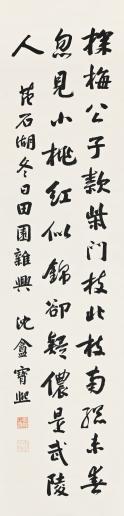 探梅公子款柴門枝北枝南總未春
忽見小桃紅似錦卻疑儂是武陵
人
范石湖冬日田園雜興 沈盦寶熙